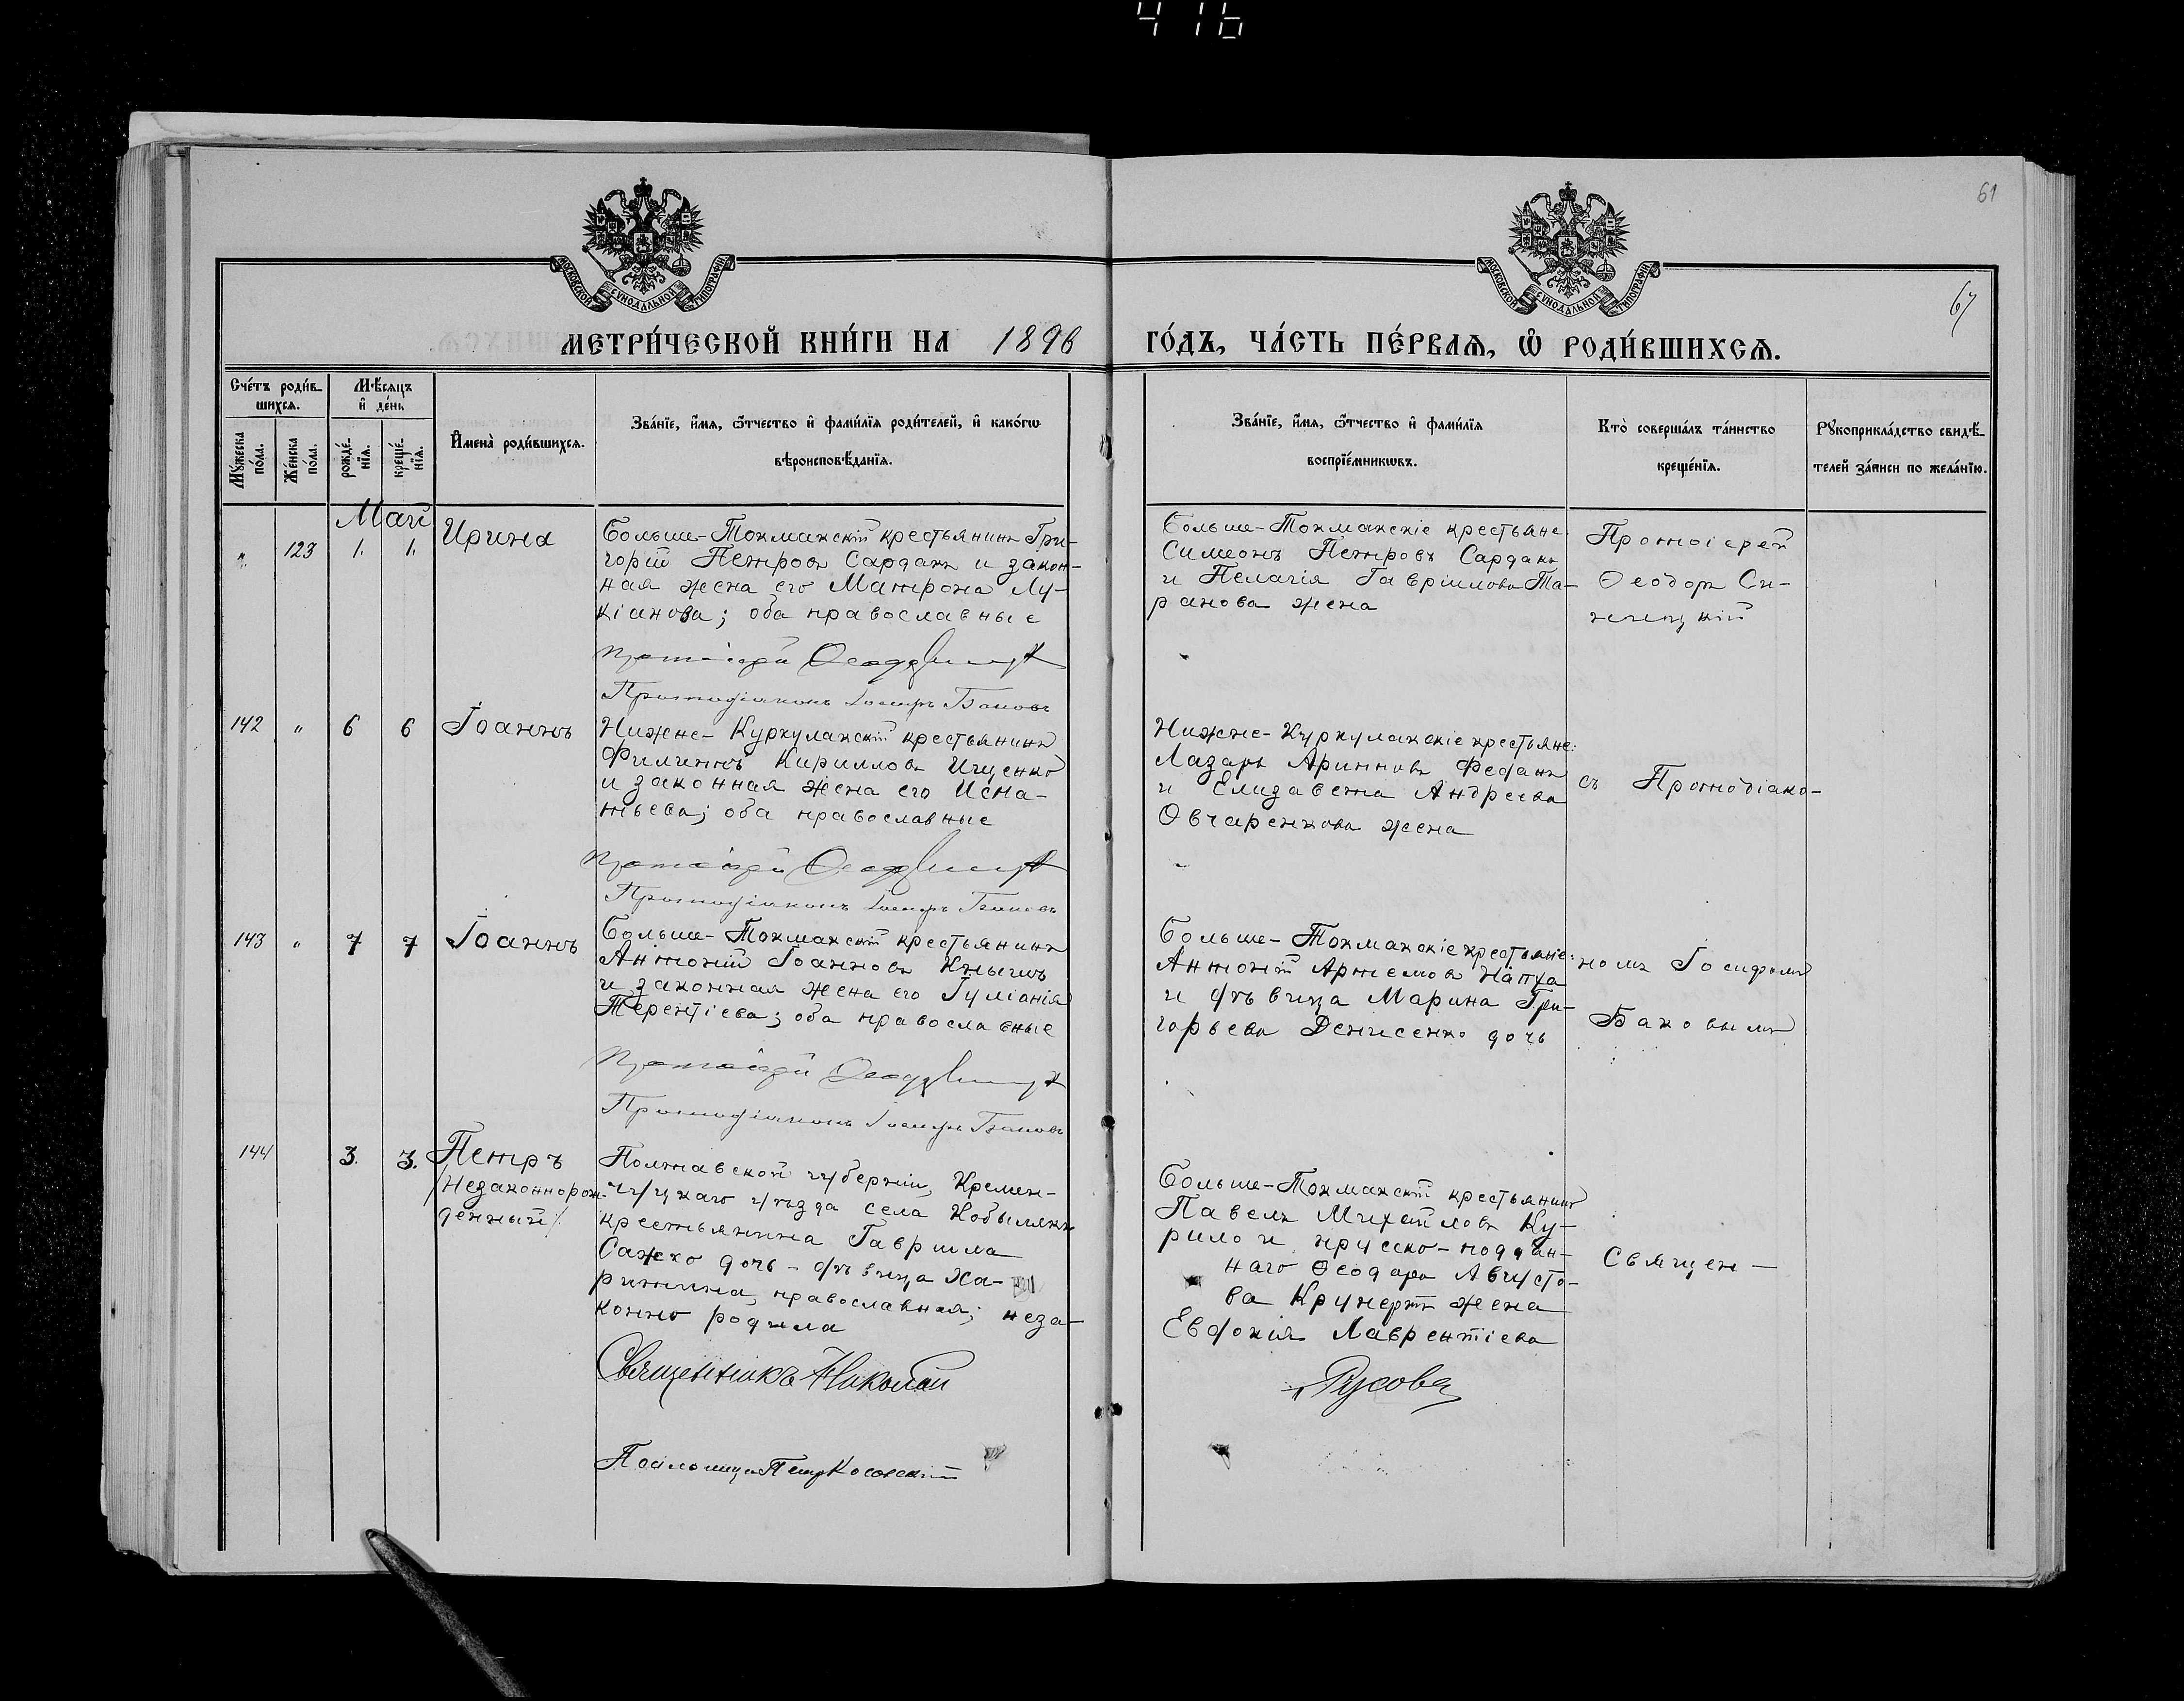 416
61
67
МОСКОВСКОЙ СѴНОДАЛЬНОЙ ТИПОГРАФІИ
МОСКОВСКОЙ СѴНОДАЛЬНОЙ ТИПОГРАФІИ
МЕТРИ́ЧЕСКОЙ КНИ́ГИ НА 1896 ГО́ДЪ, ЧА́СТЬ ПЕ́РВАѦ, Ѽ РОДИ́ВШИХСѦ.
Сче́тъ роди́в-
шихсѧ.
Мѣ́сѧцъ
и҆ де́нь
Мꙋ́жеска
по́ла.
Же́нска
по́ла.
рожде́-
нїѧ.
креще́-
нїѧ.
И҆мена̀ роди́вшихсѧ.
Зва́нїе, и҆́мѧ, ѻ҆́тчество и҆ фами́лїѧ роди́телей, и҆ како́гѡ
вѣроисповѣ́данїѧ.
Зва́нїе, и҆́мѧ, ѻ҆́тчество и҆ фами́лїѧ
воспрїе́мникѡвъ.
Кто̀ соверша́лъ та́инство
креще́нїѧ.
Рꙋкоприкла́дство свидѣ́-
телей за́писи по жела́нїю.
Май
" 123 1. 1. Ирина
Больше-Токмакскій крестьянинъ Гри-
горій Петровъ Сардакъ и закон-
ная жена его Матрона Лу-
кіанова; оба православные
Протоіерей Ѳеодоръ
Протодіаконъ Іосифъ Баковъ
Больше-Токмакскіе крестьяне:
Симеонъ Петровъ Сардакъ
и Пелагія Гавріилова Та-
ранова жена
Протоіерей
Ѳеодоръ Си-
ницкій
142 " 6 6 Іоаннъ
Нижне-Куркулакскій крестьянинъ
Филиппъ Кирилловъ Ищенко
и законная жена его
оба православные
Протоіерей Ѳеодоръ
Протодіаконъ Іосифъ Баковъ
Нижне-Куркулакскіе крестьяне:
Лазарь
и Елизавета Андреева
Овчаренкова жена
съ Протодіако-
143 " 7 7 Іоаннъ
Больше-Токмакскій крестьянинъ
Антоній Іоанновъ Кнышъ
и законная жена его Іуліанія
Терентіева; оба православные
Протоіерей Ѳеодоръ
Протодіаконъ Іосифъ Баковъ
Больше-Токмакскіе крестьяне:
Антоній Артемовъ
и дѣвица Марина Гри-
горьева Денисенко дочь
номъ Іосифомъ
Баковымъ
144 3. 3. Петръ
/Незаконнорож-
денный/.
Полтавской губерніи, Кремен-
чугскаго уѣзда села Кобылякъ
крестьянина Гавріила
Сажко дочь - дѣвица Ха-
ритина, православная; неза-
конно родила
Священникъ Николай
Псаломщикъ Петръ Косовскій
Больше-Токмакскій крестьянинъ
Павелъ Михайловъ Ку-
рило и прусско-поддан-
наго Ѳеодора Августо-
ва Крунертъ жена
Евдокія Лаврентіева
Русовъ
Священ-